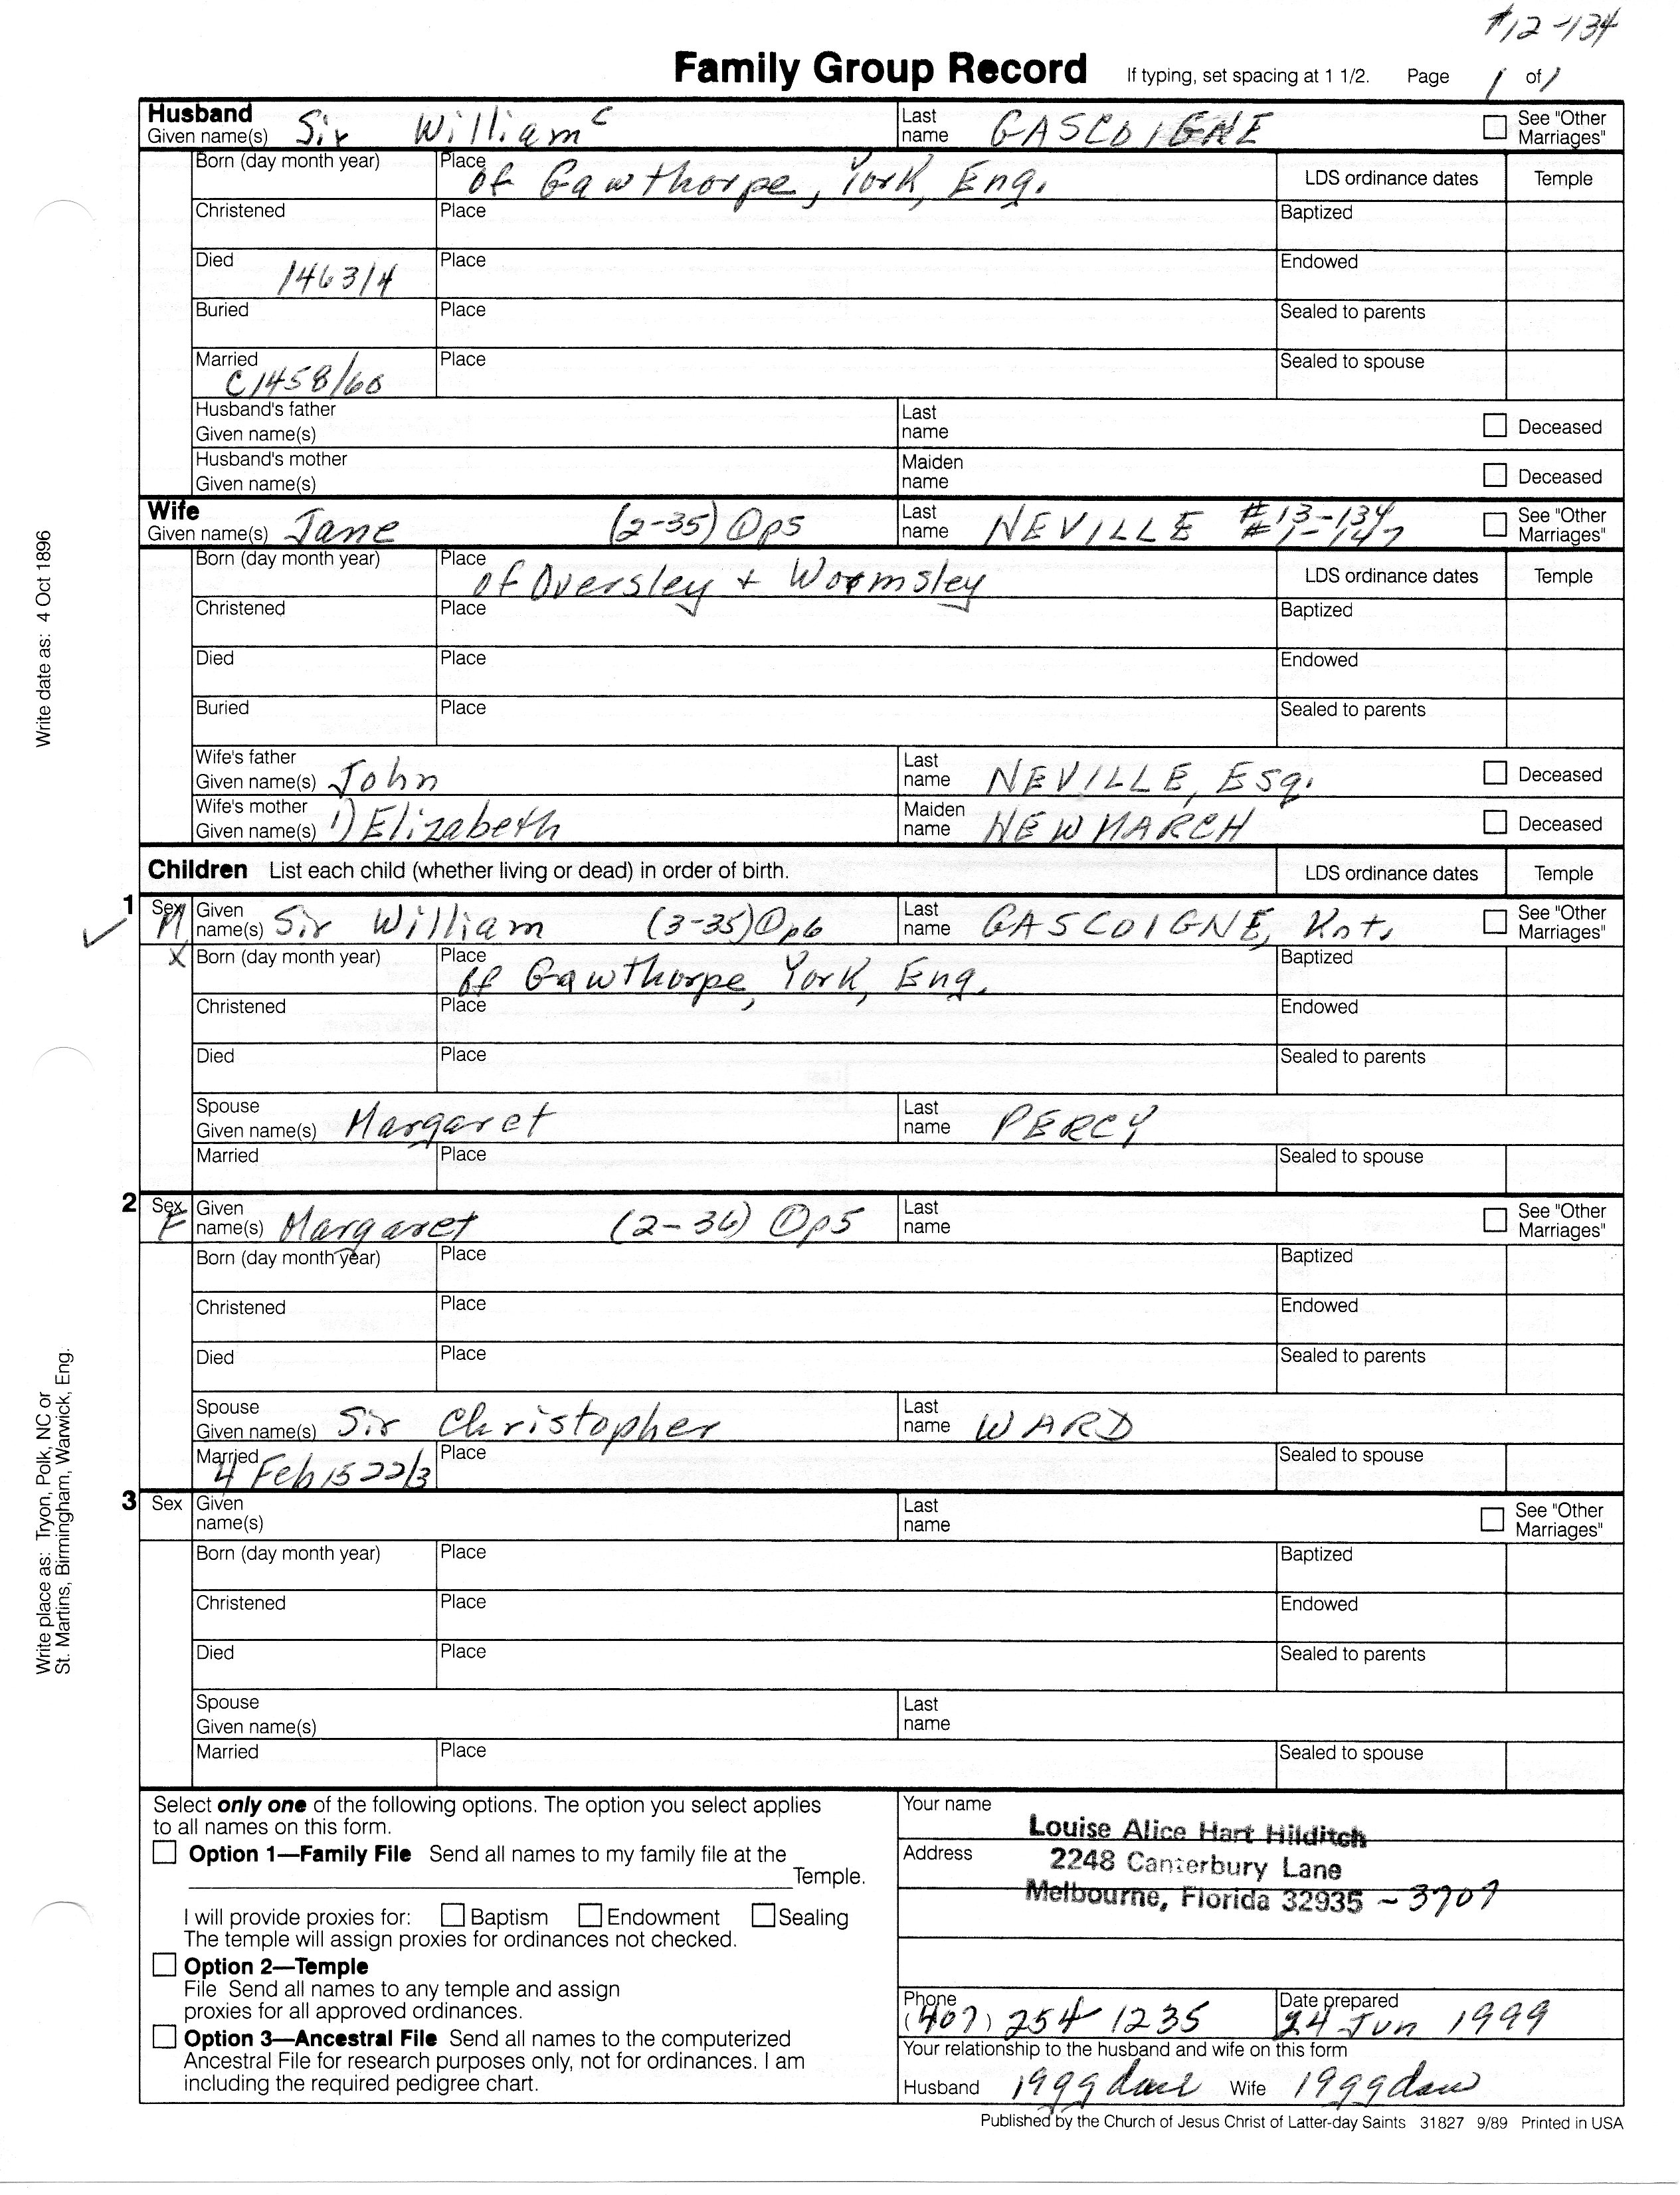 #12-134
Family Group Record If typing, set spacing at 1 1/2. Page 1 of 1
Husband
Given name(s) Sir William c Last name GASCOIGNE See "Other Marriages"
Born (day month year) Place of Gawthorpe, York, Eng. LDS ordinance dates Temple
Christened Place Baptized
Died 1463/4 Place Endowed
Buried Place Sealed to parents
Married C1458/60 Place Sealed to spouse
Husband's father
Given name(s) Last name Deceased
Husband's mother
Given name(s) Maiden name Deceased
Wife
Given name(s) Jane (2-35) Op5 Last name NEVILLE #13-134 #1-147 See "Other Marriages"
Born (day month year) Place of Oversley + Woomsley LDS ordinance dates Temple
Christened Place Baptized
Died Place Endowed
Buried Place Sealed to parents
Wife's father
Given name(s) John Last name NEVILLE, Esq. Deceased
Wife's mother
Given name(s) 1) Elizabeth Maiden name NEWMARCH Deceased
Children List each child (whether living or dead) in order of birth. LDS ordinance dates Temple
1 Sex M Given name(s) Sir William (3-35) Op6 Last name GASCOIGNE, Knt. See "Other Marriages"
X Born (day month year) Place of Gawthorpe, York, Eng. Baptized
Christened Place Endowed
Died Place Sealed to parents
Spouse
Given name(s) Margaret Last name PERCY
Married Place Sealed to spouse
2 Sex F Given name(s) Margaret (2-36) Op5 Last name See "Other Marriages"
Born (day month year) Place Baptized
Christened Place Endowed
Died Place Sealed to parents
Spouse
Given name(s) Sir Christopher Last name WARD
Married 4 Feb 1522/3 Place Sealed to spouse
3 Sex Given name(s) Last name See "Other Marriages"
Born (day month year) Place Baptized
Christened Place Endowed
Died Place Sealed to parents
Spouse
Given name(s) Last name
Married Place Sealed to spouse
Write date as: 4 Oct 1896
Write place as: Tryon, Polk, NC or
St. Martins, Birmingham, Warwick, Eng.
Select only one of the following options. The option you select applies
to all names on this form.
Option 1—Family File Send all names to my family file at the
Temple.
I will provide proxies for: Baptism Endowment Sealing
The temple will assign proxies for ordinances not checked.
Option 2—Temple
File Send all names to any temple and assign
proxies for all approved ordinances.
Option 3—Ancestral File Send all names to the computerized
Ancestral File for research purposes only, not for ordinances. I am
including the required pedigree chart.
Your name Louise Alice Hart Hilditch
Address 2248 Canterbury Lane
Melbourne, Florida 32935 - 3707
Phone (407) 254 1235 Date prepared 24 Jun 1999
Your relationship to the husband and wife on this form
Husband 19ggdau Wife 19ggdau
Published by the Church of Jesus Christ of Latter-day Saints 31827 9/89 Printed in USA